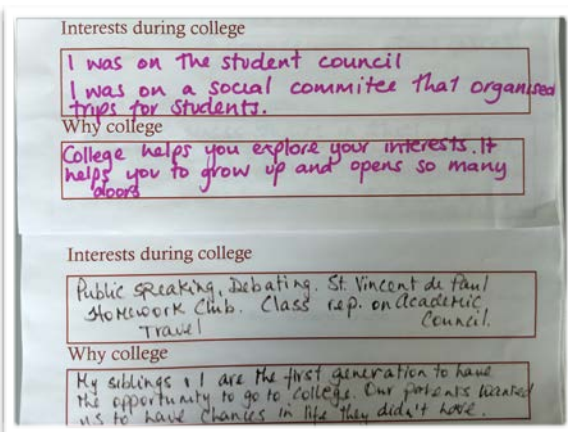 Interests during college
I was on the student council
I was on a social commitee that organised
trips for students.
Why college
College helps you explore your interests. It
helps you to grow up and opens so many
doors
Interests during college
Public speaking, Debating. St. Vincent de Paul
Homework Club. Class rep. on Academic
Travel Council.
Why college
My siblings & I are the first generation to have
the opportunity to go to college. Our parents wanted
us to have chances in life they didn't have.